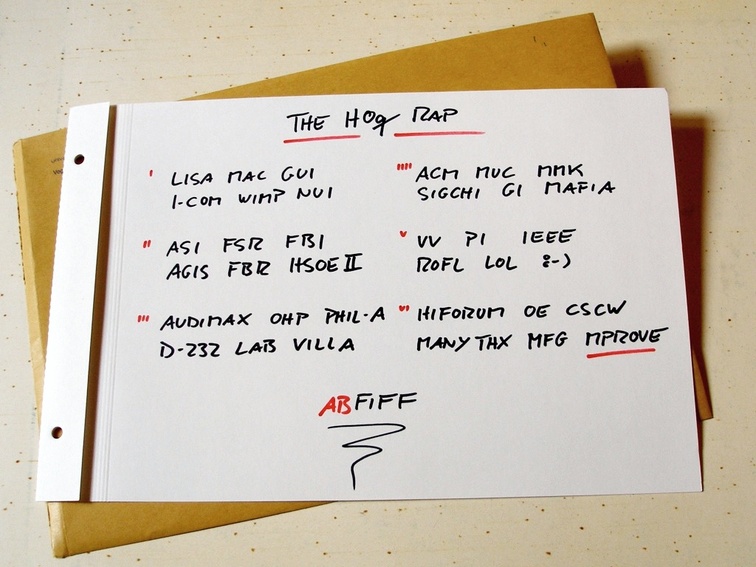 THE HOg RAP
' LISA MAC GUI
I-COM WIMP NUI
" ASI FSR FBI
AGIS FBR HSOE II
''' AUDIMAX OHP PHIL-A
D-232 LAB VILLA
'''' ACM MUC MMK
SIGCHI GI MAFIA
v VV PI IEEE
ROFL LOL :-)
v' HIFORUM OE CSCW
MANY THX MFG MPROVE
ABFIFF